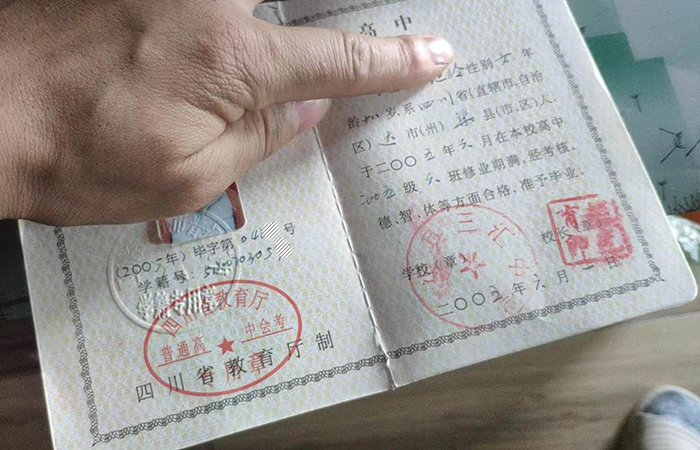 (2005年)毕字第04 号
学籍号:5
四川省教育厅
普通高 中会考
专用章
四川省教育厅制
高中
性别女年
龄 岁,系四川省(直辖市、自治
区)达市(州)渠县(市、区)人,
于二〇〇五年六月在本校高中
二〇〇五级六班修业期满,经考核,
德、智、体等方面合格,准予毕业。
学校(章) 校长(章)
二〇〇五年六月一日